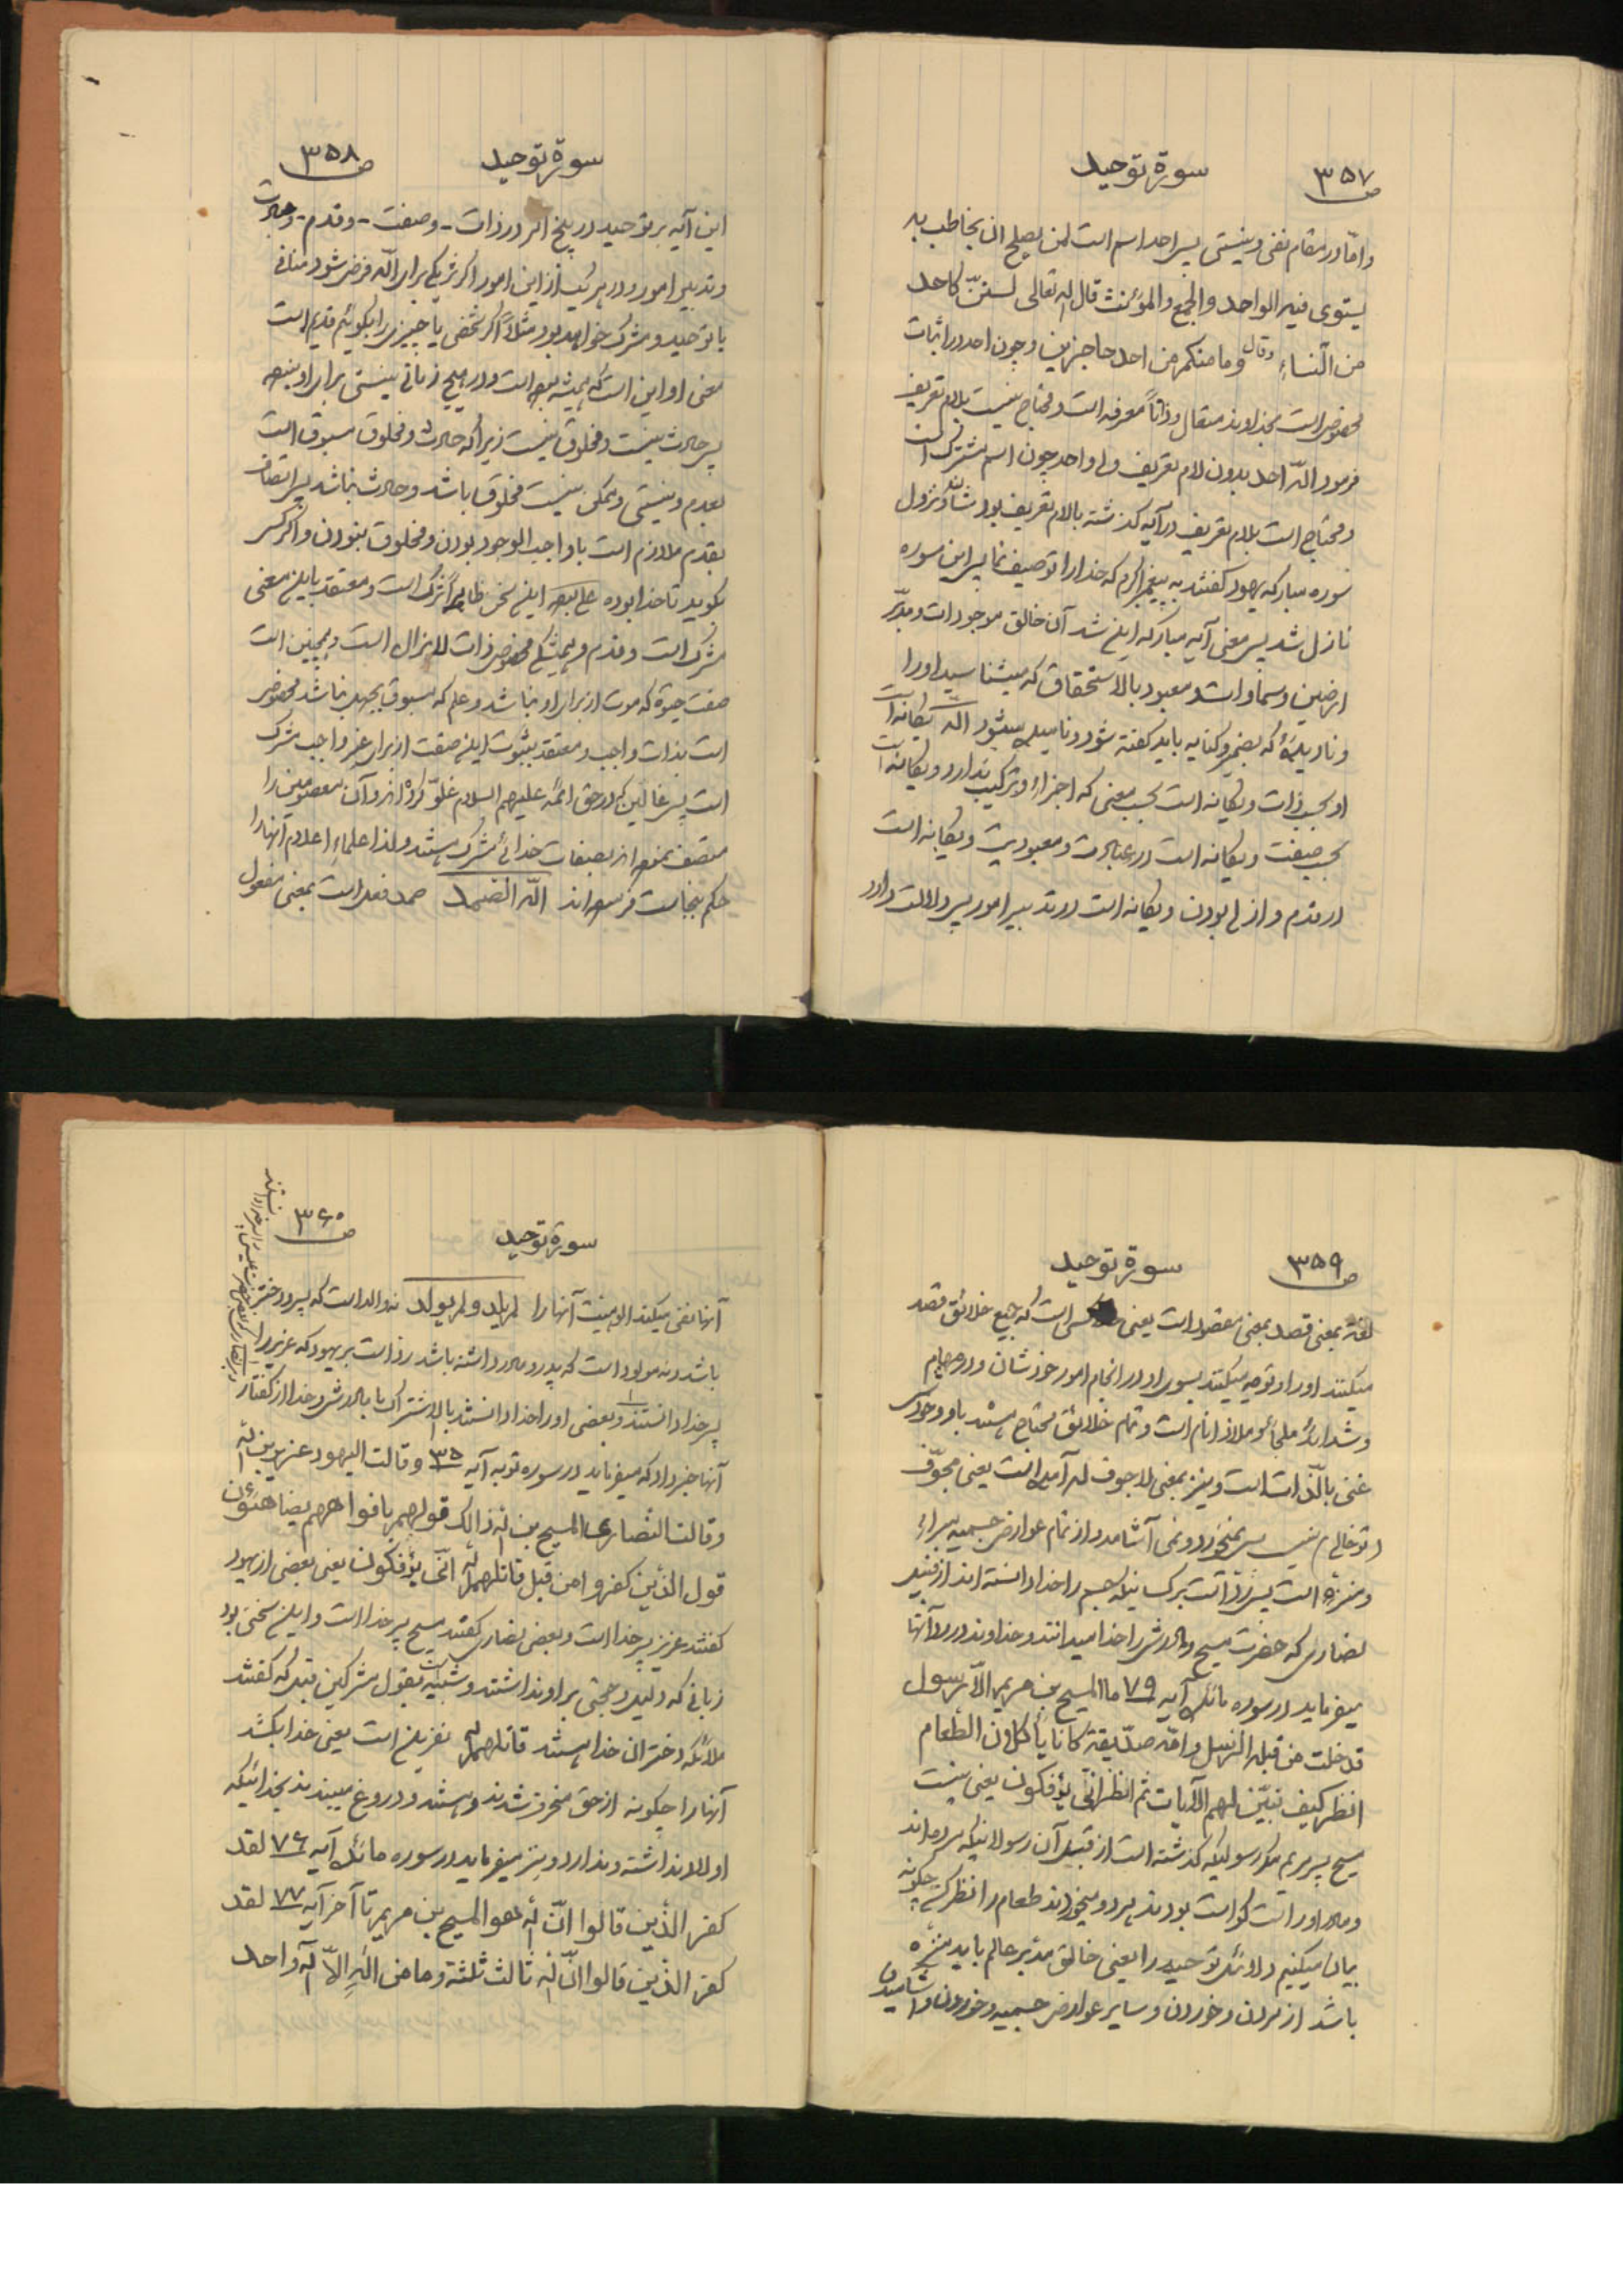 ص ۳۵۷
سورة توحید
و امّا در مقام نفی و نیستی پس احد اسم است لمن یصلح ان یخاطب به
یستوی فیه الواحد والجمع والمؤنث قال الله تعالی لستنّ کاحد
من النّساء وقال وما منکم من احد حاجزین و چون احد در اثبات
مخصوص است بخداوند متعال و ذاتاً معرفه است و محتاج نیست بلام تعریف
فرمود الله احد بدون لام تعریف ولی واحد چون اسم مشترک است
و محتاج است بلام تعریف در آیه گذشته بالام تعریف بود شأن نزول
سوره مبارکه یهود گفتند به پیغمبر اکرم که خدا را توصیف نما پس این سوره
نازل شد پس معنی آیه مبارکه این شد آن خالق موجودات و مدبّر
ارضین و سماوات و معبود بالاستحقاق که میشناسید او را
و نادیده که بضمیر و کنایه باید گفته شود و نامیده میشود الله یگانه است
او بحسب ذات و یگانه است بحسب معنی که اجزاء و ترکیب ندارد و یگانه است
بحسب صفت و یگانه است در عبادت و معبودیت و یگانه است
در قدم و ازلی بودن و یگانه است در تدبیر امور پس دلالت دارد
ص ۳۵۸
سورة توحید
این آیه بر توحید در پنج امر در ذات - وصفت - وقدم - وعبادت
و تدبیر امور و در هر یک از این امور اگر شریکی برای الله فرض شود منافی
با توحید و شرک خواهد بود مثلاً اگر شخصی یا چیزی را بگوئیم قدیم است
معنی او این است که همیشه بوده است و در هیچ زمانی نیستی برای او نبوده
پس حادث نیست و مخلوق نیست زیرا که حادث و مخلوق مسبوق است
بعدم و نیستی و ممکن نیست مخلوق باشد و حادث نباشد پس اتصاف
بقدم ملازم است با واجب الوجود بودن و مخلوق نبودن و اگر کسی
بگوید تا خدا بوده علی بوده این سخن ظاهراً شرک است و معتقد باین معنی
مشرک است و قدم و همیشگی مخصوص ذات لایزال است و همچنین است
صفت حیوة که موت از برای او نباشد و علم که مسبوق بجهل نباشد مخصوص
است بذات واجب و معتقد بثبوت این صفت از برای غیر واجب مشرک
است پس غالین که در حق ائمه علیهم السلام غلوّ کرده اند و آن معصومین را
متصف نموده اند بصفات خدائی مشرک هستند ولذا علماء اعلام آنها را
حکم بنجاست فرموده اند الله الصمد صمد فعل است بمعنی مفعول
ص ۳۵۹
سورة توحید
لغة بمعنی قصد بمعنی مقصود است یعنی کسی است که جمیع خلائق قصد
میکنند او را و توجه میکنند بسوی او در انجام امور خودشان و در مهام
و شدائد ملجأ و ملاذ انام است و تمام خلائق محتاج هستند باو و خودش
غنی بالذات است و نیز بمعنی لا جوف له آمده است یعنی مجوّف
(توخالی) نیست پس نمیخورد و نمی آشامد و از تمام عوارض جسمیه مبراء
و منزه است پس ردّ است بر کسانیکه جسم را خدا دانسته اند از قبیل
نصاری که حضرت مسیح و مادرش را خدا میدانند و خداوند در ردّ آنها
میفرماید در سوره مائده آیه ۷۹ ما المسیح بن مریم الّا رسول
قد خلت من قبله الرسل وامّه صدّیقة کانا یأکلان الطّعام
انظر کیف نبیّن لهم الآیات ثم انظر انّی یؤفکون یعنی نیست
مسیح پسر مریم مگر رسولیکه گذشته است از قبل آن رسولانیکه مرده اند
و مادر او راست گو است بودند هر دو میخوردند طعام را نظر کن چگونه
بیان میکنیم دلائل توحید را یعنی خالق مدبّر عالم باید منزّه
باشد از مردن و خوردن و سایر عوارض جسمیه و خوردن و آشامیدن
ص ۳۶۰
سورة توحید
آنها نفی میکند الوهیت آنها را لم یلد ولم یولد نه والد است که پسر و دختر
باشد و نه مولود است که پدر و مادر داشته باشد ردّ است بر یهود که عزیر را
پسر خدا دانستند و بعضی او را خدا دانستند بالاشتراک با مادرش و خدا از گفتار
آنها خبر داد که میفرماید در سوره توبه آیه ۳۵ وقالت الیهود عزیر بن الله
وقالت النصاری المسیح بن الله ذالک قولهم بافواههم یضاهئون
قول الذین کفروا من قبل قاتلهم الله انّی یؤفکون یعنی بعضی از یهود
گفتند عزیر پسر خدا است و بعضی نصاری گفتند مسیح پسر خدا است و این سخنی بود
زبانی که دلیل و حجّتی بر او نداشتند و شبیه است بقول مشرکین قبل که گفتند
ملائکه دختران خدا هستند قاتلهم الله نفرین است یعنی خدا بکشد
آنها را چگونه از حق منحرف شدند و هستند و دروغ میبندند بخدائیکه
اولاد نداشته و ندارد و نیز میفرماید در سوره مائده آیه ۷۶ لقد
کفر الذین قالوا انّ الله هو المسیح بن مریم تا آخر آیه ۷۷ لقد
کفر الذین قالوا انّ الله ثالث ثلثة وما من اله الّا اله واحد